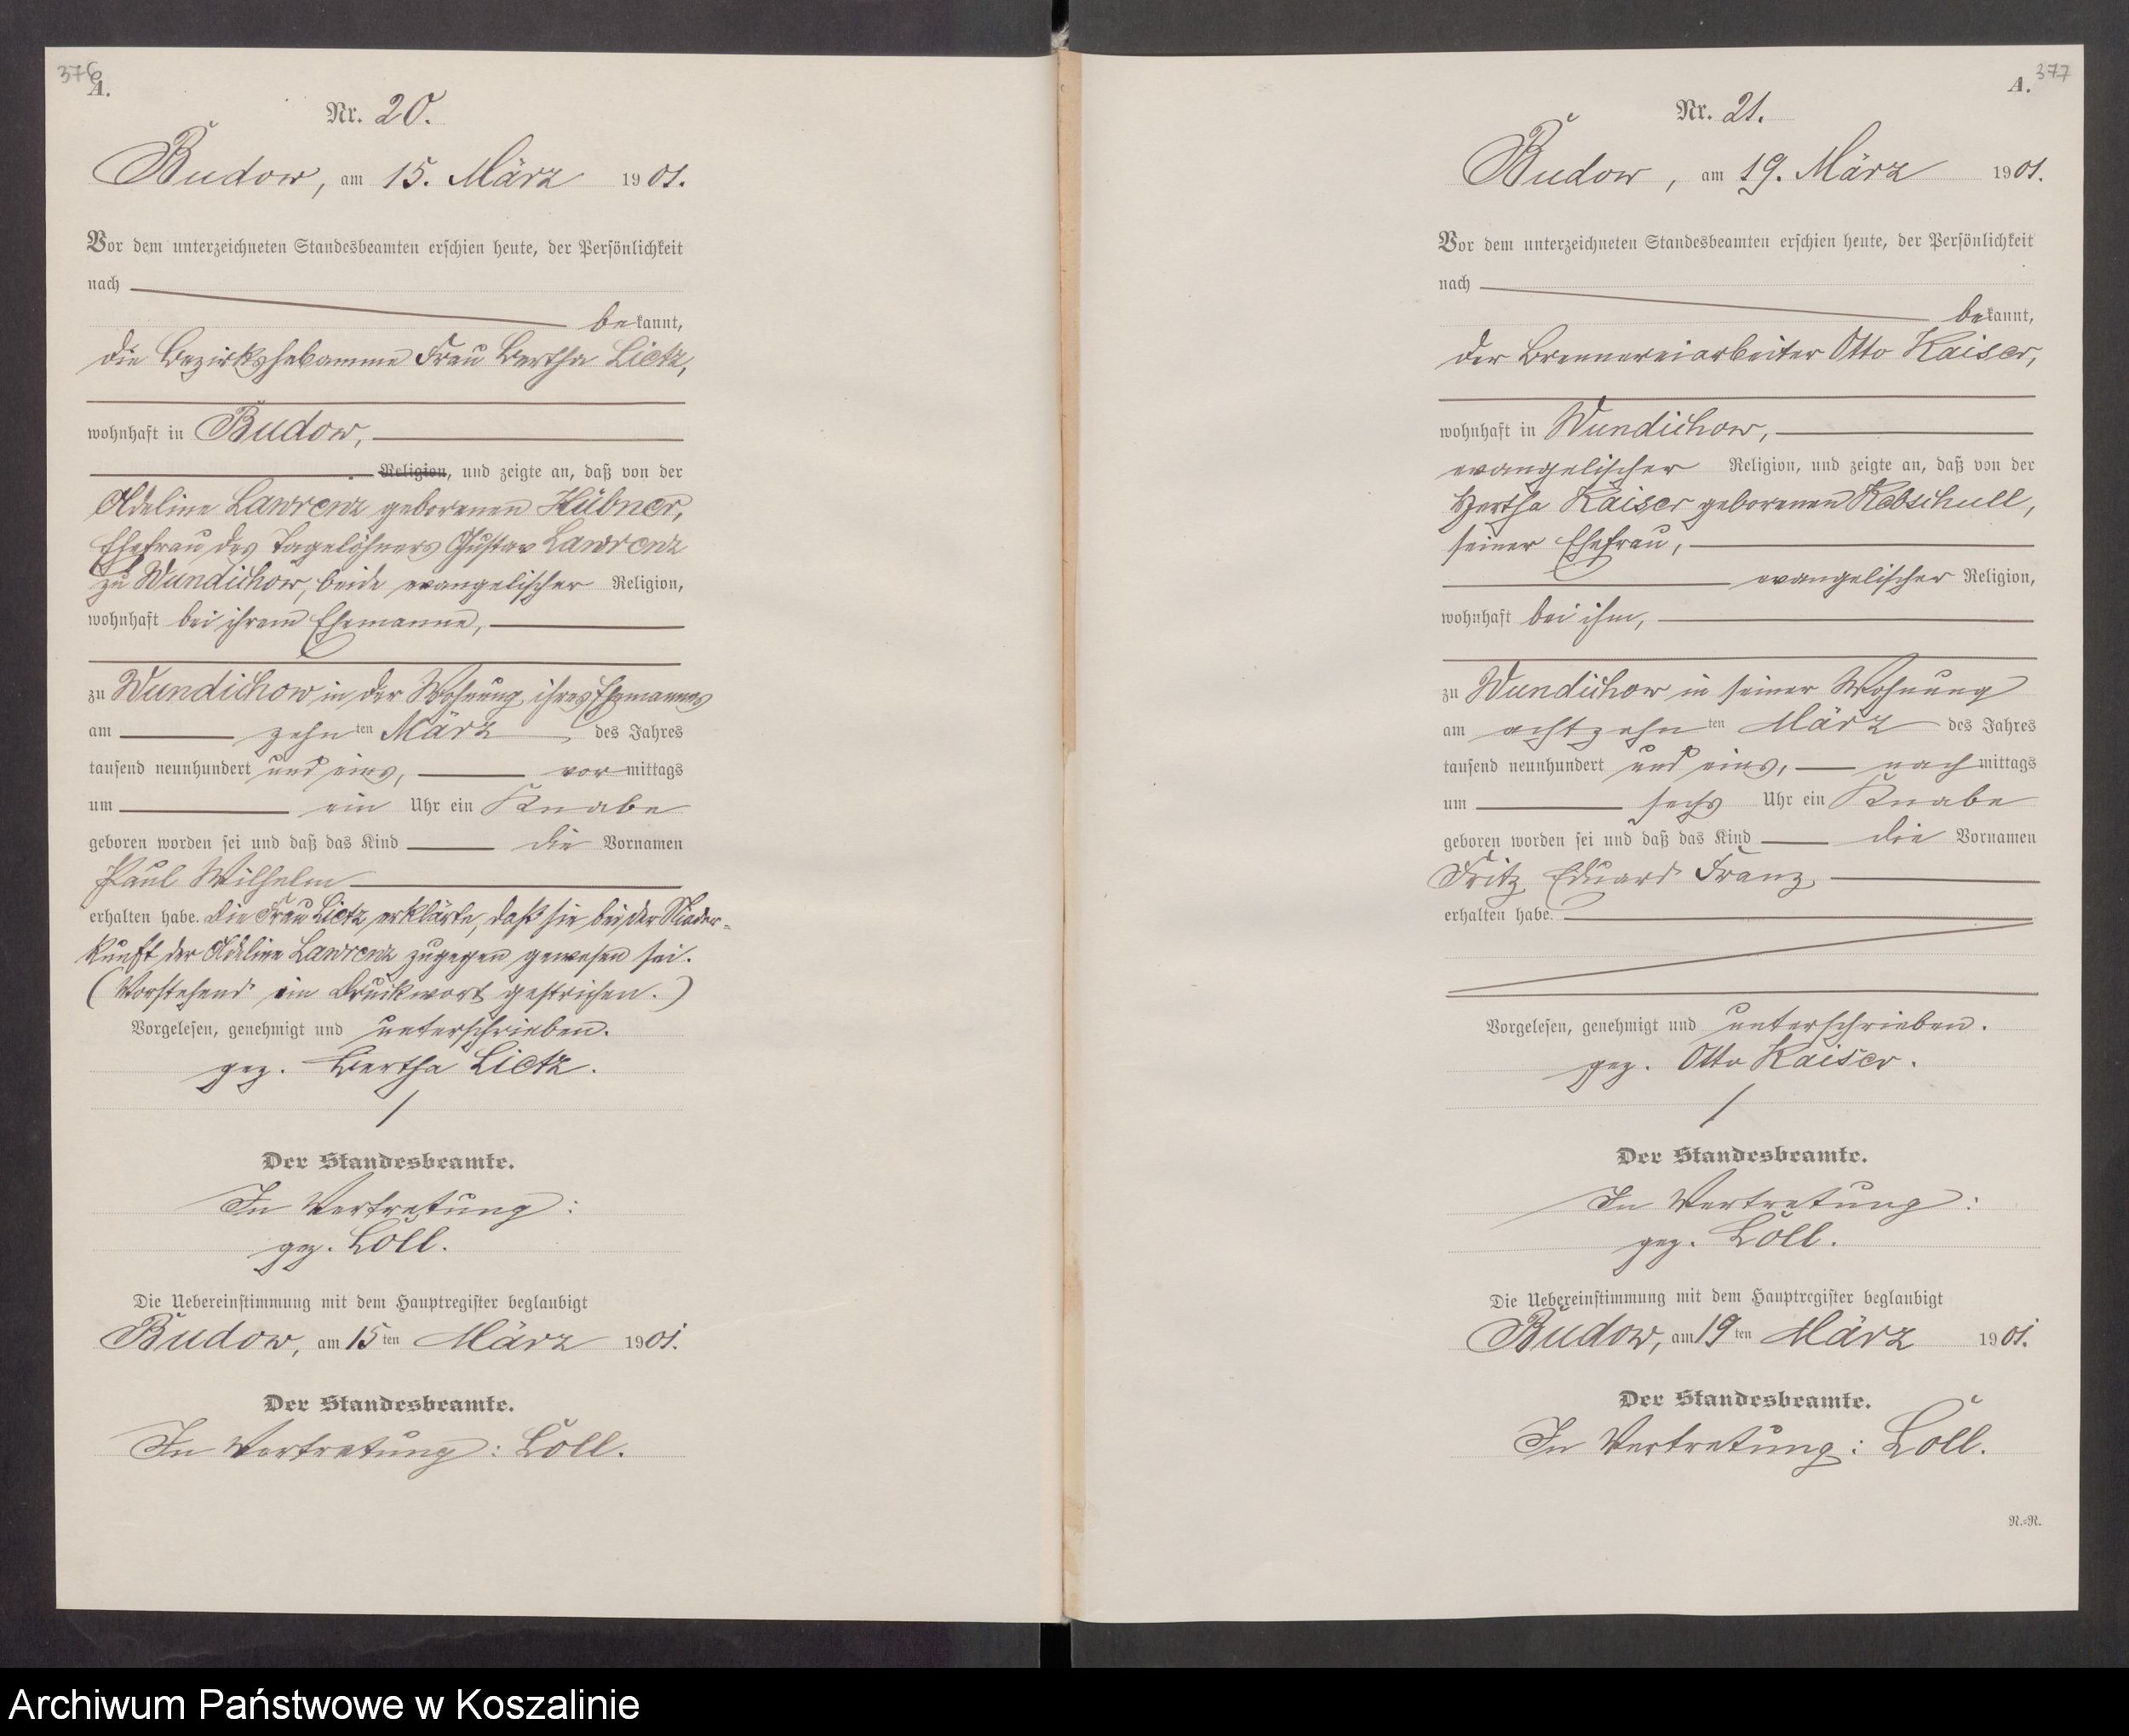 376
A.
Nr. 20.
Budow, am 15. März 1901.
Vor dem unterzeichneten Standesbeamten erschien heute, der Persönlichkeit
nach
bekannt,
die Bezirkshebamme Frau Bertha Lietz,
wohnhaft in Budow,
Religion, und zeigte an, daß von der
Adeline Lawrenz geborenen Hübner,
Ehefrau des Tagelöhners Gustav Lawrenz
zu Wundichow, beide evangelischer Religion,
wohnhaft bei ihrem Ehemanne,
zu Wundichow in der Wohnung ihres Ehemannes
am zehnten März des Jahres
tausend neunhundert und eins, vormittags
um ein Uhr ein Knabe
geboren worden sei und daß das Kind die Vornamen
Paul Wilhelm
erhalten habe. Die Frau Lietz erklärte, daß sie bei der Nieder-
kunft der Adeline Lawrenz zugegen gewesen sei.
(Vorstehend ein Druckwort gestrichen.)
Vorgelesen, genehmigt und unterschrieben.
gez. Bertha Lietz.
Der Standesbeamte.
In Vertretung:
gez. Loll.
Die Uebereinstimmung mit dem Hauptregister beglaubigt
Budow, am 15ten März 1901.
Der Standesbeamte.
In Vertretung: Loll.
377
A.
Nr. 21.
Budow, am 19. März 1901.
Vor dem unterzeichneten Standesbeamten erschien heute, der Persönlichkeit
nach
bekannt,
der Brennereiarbeiter Otto Kaiser,
wohnhaft in Wundichow,
evangelischer Religion, und zeigte an, daß von der
Hertha Kaiser geborenen Kebschull,
seiner Ehefrau,
evangelischer Religion,
wohnhaft bei ihm,
zu Wundichow in seiner Wohnung
am achtzehnten März des Jahres
tausend neunhundert und eins, nachmittags
um sechs Uhr ein Knabe
geboren worden sei und daß das Kind die Vornamen
Fritz Eduard Franz
erhalten habe.
Vorgelesen, genehmigt und unterschrieben.
gez. Otto Kaiser.
Der Standesbeamte.
In Vertretung:
gez. Loll.
Die Uebereinstimmung mit dem Hauptregister beglaubigt
Budow, am 19ten März 1901.
Der Standesbeamte.
In Vertretung: Loll.
N.-R.
Archiwum Państwowe w Koszalinie